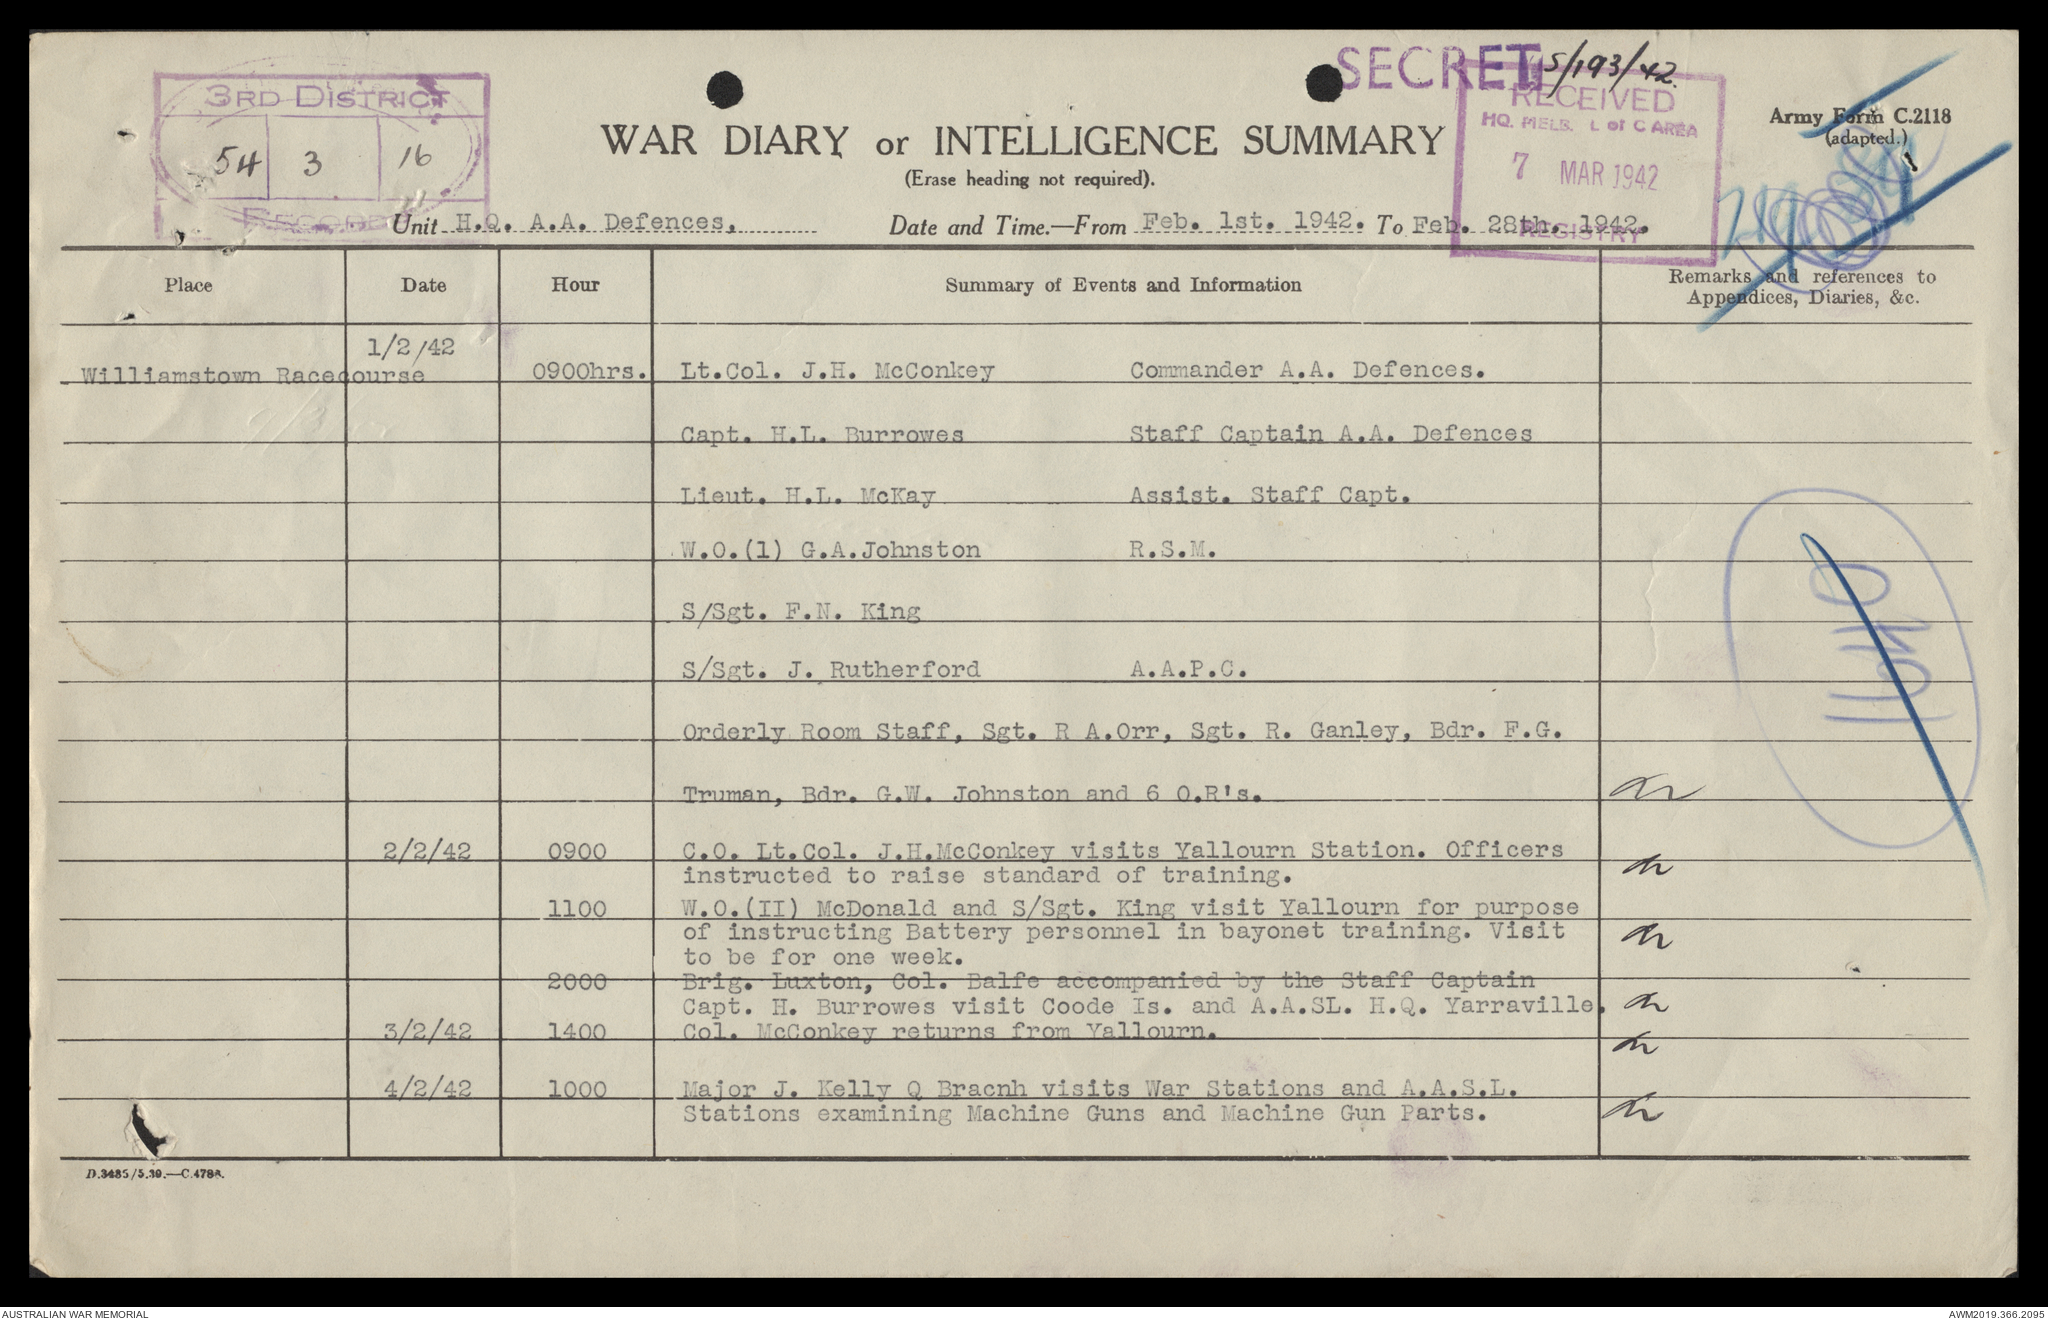 SECRET
S/193/42.
3RD DISTRICT
54 3 16
RECORDS
RECEIVED
HQ. MELB. L of C AREA
7 MAR 1942
REGISTRY
Army Form C.2118
(adapted.)
WAR DIARY or INTELLIGENCE SUMMARY
(Erase heading not required).
Unit H.Q. A.A. Defences, Date and Time.—From Feb. 1st. 1942. To Feb. 28th. 1942.
Place Date Hour Summary of Events and Information Remarks and references to
Appendices, Diaries, &c.
1/2/42
Williamstown Racecourse 0900hrs. Lt.Col. J.H. McConkey Commander A.A. Defences.
Capt. H.L. Burrowes Staff Captain A.A. Defences
Lieut. H.L. McKay Assist. Staff Capt.
W.O.(1) G.A.Johnston R.S.M.
S/Sgt. F.N. King
S/Sgt. J. Rutherford A.A.P.C.
Orderly Room Staff, Sgt. R A.Orr, Sgt. R. Ganley, Bdr. F.G.
Truman, Bdr. G.W. Johnston and 6 O.R's.
2/2/42 0900 C.O. Lt.Col. J.H.McConkey visits Yallourn Station. Officers
instructed to raise standard of training.
1100 W.O.(II) McDonald and S/Sgt. King visit Yallourn for purpose
of instructing Battery personnel in bayonet training. Visit
to be for one week.
2000 Brig. Luxton, Col. Balfe accompanied by the Staff Captain
Capt. H. Burrowes visit Coode Is. and A.A.SL. H.Q. Yarraville.
3/2/42 1400 Col. McConkey returns from Yallourn.
4/2/42 1000 Major J. Kelly Q Bracnh visits War Stations and A.A.S.L.
Stations examining Machine Guns and Machine Gun Parts.
D.3485/5.39.—C.4788.
AUSTRALIAN WAR MEMORIAL AWM2019.366.2095